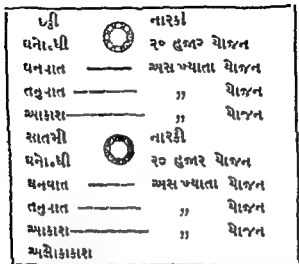 છઠ્ઠી નારકી
ઘનોદધી ૨૦ હજાર યોજન
ઘનવાત અસંખ્યાતા યોજન
તનુવાત ,, યોજન
આકાશ ,, યોજન
સાતમી નારકી
ઘનોદધી ૨૦ હજાર યોજન
ઘનવાત અસંખ્યાતા યોજન
તનુવાત ,, યોજન
આકાશ ,, યોજન
અલોકાકાશ